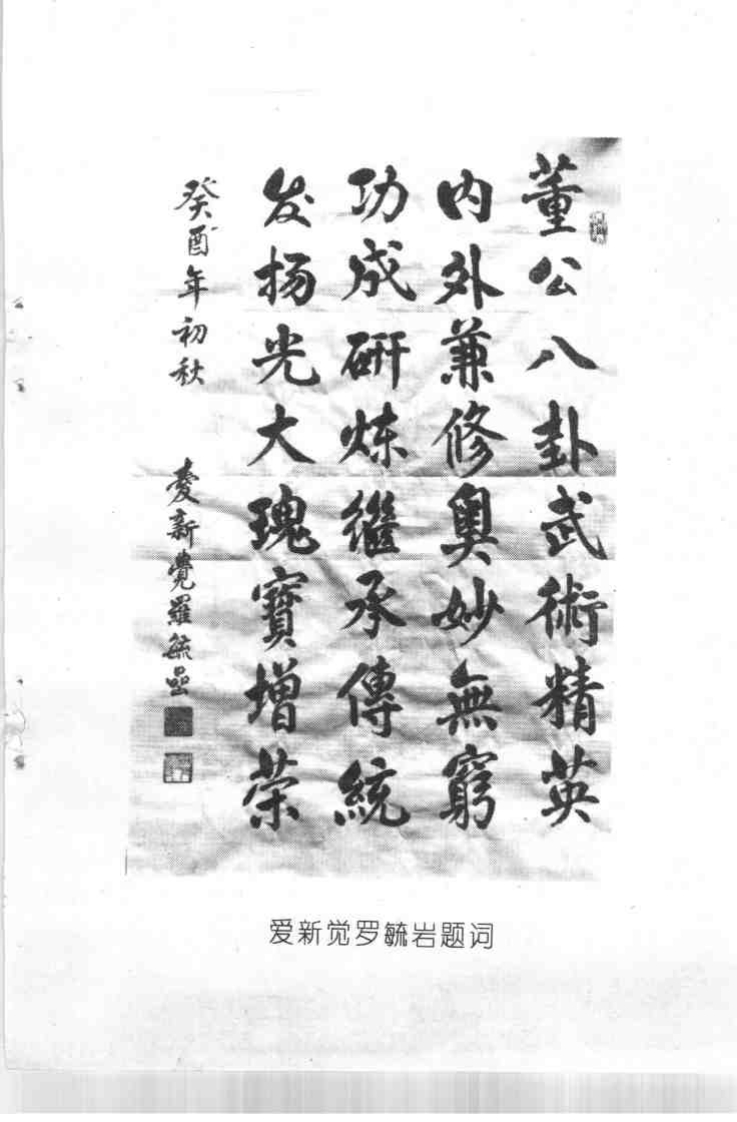 董公八卦武術精英
内外兼修奥妙無窮
功成研炼繼承傳統
发扬光大瑰寶增荣
癸酉年初秋
愛新覺羅毓嵒
爱新觉罗毓岩题词